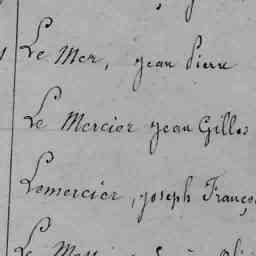 Le Mer, Jean Pierre
Le Mercier Jean Gilles
Lemercier, Joseph Franço
Le